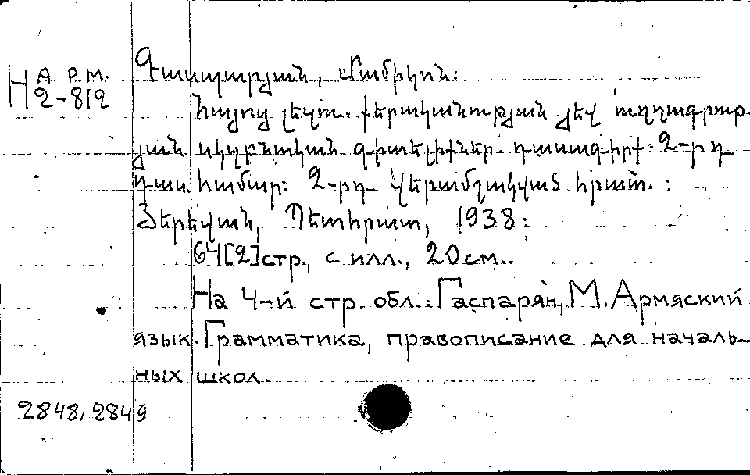 Н А Р М.
2-812
Գասպարյան, Մամիկոն:
Հայոց լեզու. քերականության յեվ ուղղագրու-
յան սկզբնական գիտելիքներ. դասագիրք 2-րդ
դաս. համար: 2-րդ վերամշակված հրատ.:
Յերեվան, Պետհրատ, 1938:
64[2]стр., с илл., 20см..
На 4-й стр. обл.: Гаспарян, М. Армяский
язык. Грамматика, правописание для началь-
ных школ.
2848, 2849